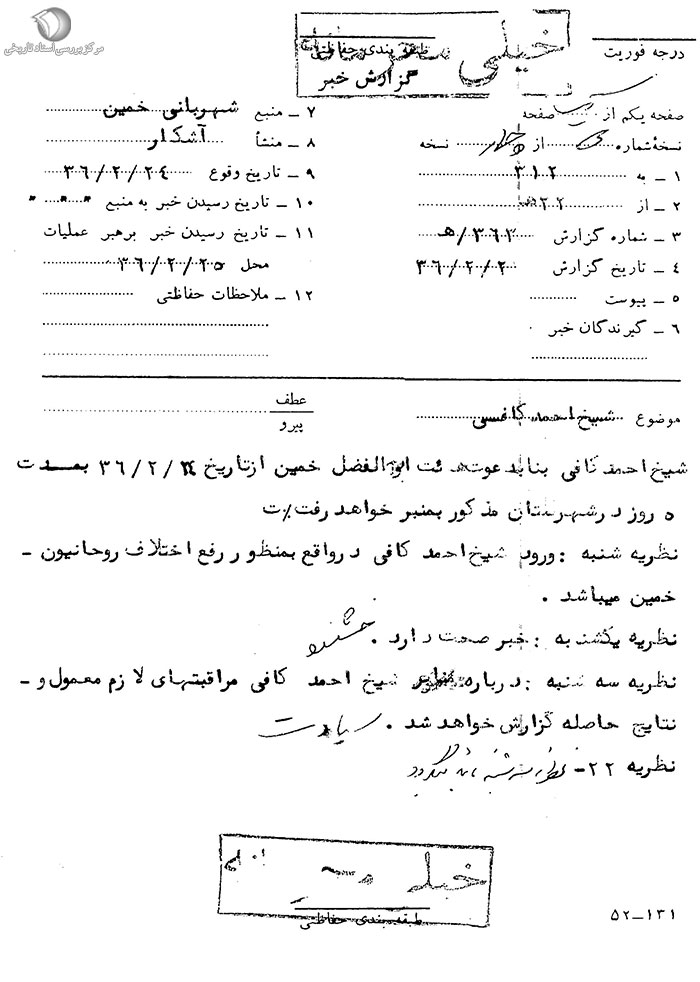 مرکز بررسی اسناد تاریخی
درجه فوریت
خیلی
طبقه بندی حفاظتی
گزارش خبر
صفحه یکم از صفحه
نسخهٔ شماره از نسخه
۱ ـ به ۳۱۲
۲ ـ از
۳ ـ شماره گزارش
۴ ـ تاریخ گزارش
۵ ـ پیوست
۶ ـ گیرندگان خبر
۷ ـ منبع شهربانی خمین
۸ ـ منشأ آشکار
۹ ـ تاریخ وقوع ۳۶/۲/۲۴
۱۰ ـ تاریخ رسیدن خبر به منبع " " "
۱۱ ـ تاریخ رسیدن خبر برهبر عملیات
محل ۳۶/۲/۲۵
۱۲ ـ ملاحظات حفاظتی
موضوع شیخ احمد کافی
عطف
پیرو
شیخ احمد کافی بنا بدعوت هیئت ابوالفضل خمین ازتاریخ ۳۶/۲/ بمدت
۵ روز در شهرستان مذکور بمنبر خواهد رفت
نظریه شنبه : ورود شیخ احمد کافی در واقع بمنظور رفع اختلاف روحانیون ـ
خمین میباشد .
نظریه یکشنبه : خبر صحت دارد .
نظریه سه شنبه : درباره منابر شیخ احمد کافی مراقبتهای لازم معمول و ـ
نتایج حاصله گزارش خواهد شد .
نظریه ۲۲-
خیلی
طبقه بندی حفاظتی
۵۲ـ۱۳۱